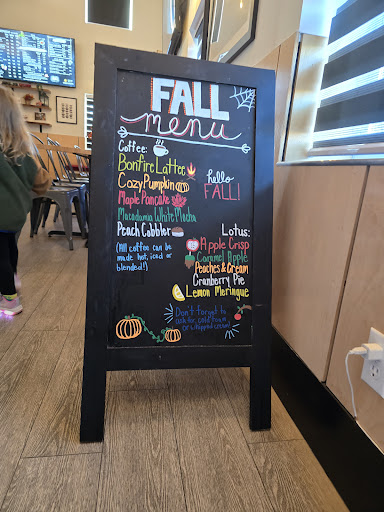 FALL
menu
Coffee:
Bonfire Lattee
Cozy Pumpkin
Maple Pancake
Macadamia White Mocha
Peach Cobbler
(All coffee can be
made hot, iced or
blended!)
hello
FALL!
Lotus:
Apple Crisp
Caramel Apple
Peaches & Cream
Cranberry Pie
Lemon Meringue
Don't forget to
ask for cold foam
or whipped cream!